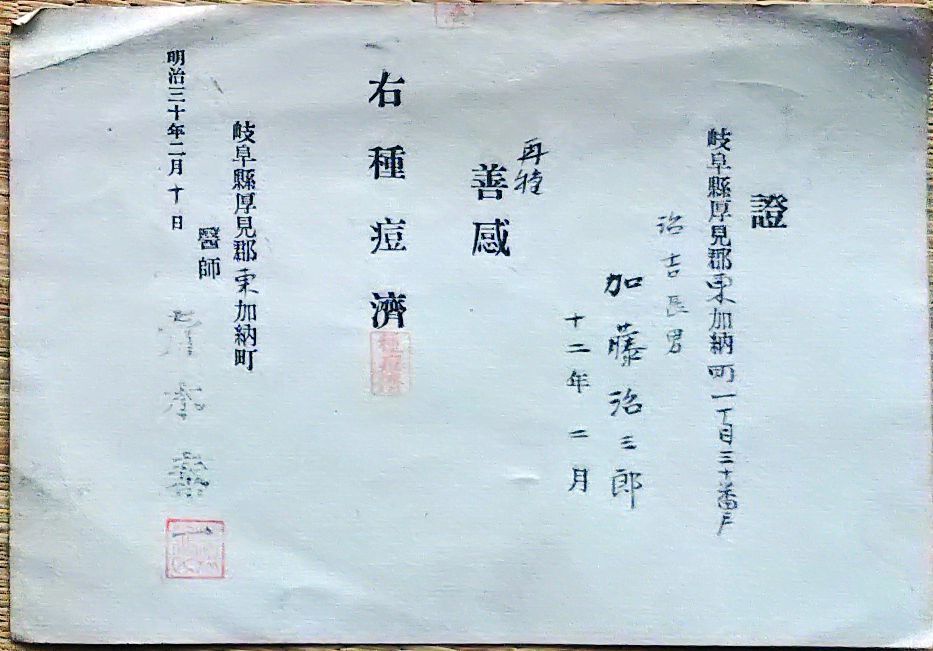 證
岐阜縣厚見郡東加納町一丁目三十番戸
治吉長男
加藤治三郎
十二年二月
再種
善感
右種痘濟
岐阜縣厚見郡東加納町
醫師
明治三十年二月十日